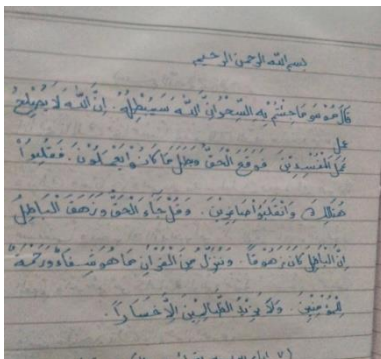 بسم الله الرحمن الرحيم
قَالَ مُوسَى مَا جِئْتُم بِهِ السِّحْرُ إِنَّ اللَّهَ سَيُبْطِلُهُ. إِنَّ اللَّهَ لَا يُصْلِحُ
عمل
عَمَلَ الْمُفْسِدِينَ. فَوَقَعَ الْحَقُّ وَبَطَلَ مَا كَانُوا يَعْمَلُونَ. فَغُلِبُوا
هُنَالِكَ وَانْقَلَبُوا صَاغِرِينَ. وَقُلْ جَاءَ الْحَقُّ وَزَهَقَ الْبَاطِلُ
إِنَّ الْبَاطِلَ كَانَ زَهُوقًا. وَنُنَزِّلُ مِنَ الْقُرْآنِ مَا هُوَ شِفَاءٌ وَرَحْمَةٌ
لِلْمُؤْمِنِينَ. وَلَا يَزِيدُ الظَّالِمِينَ إِلَّا خَسَارًا.